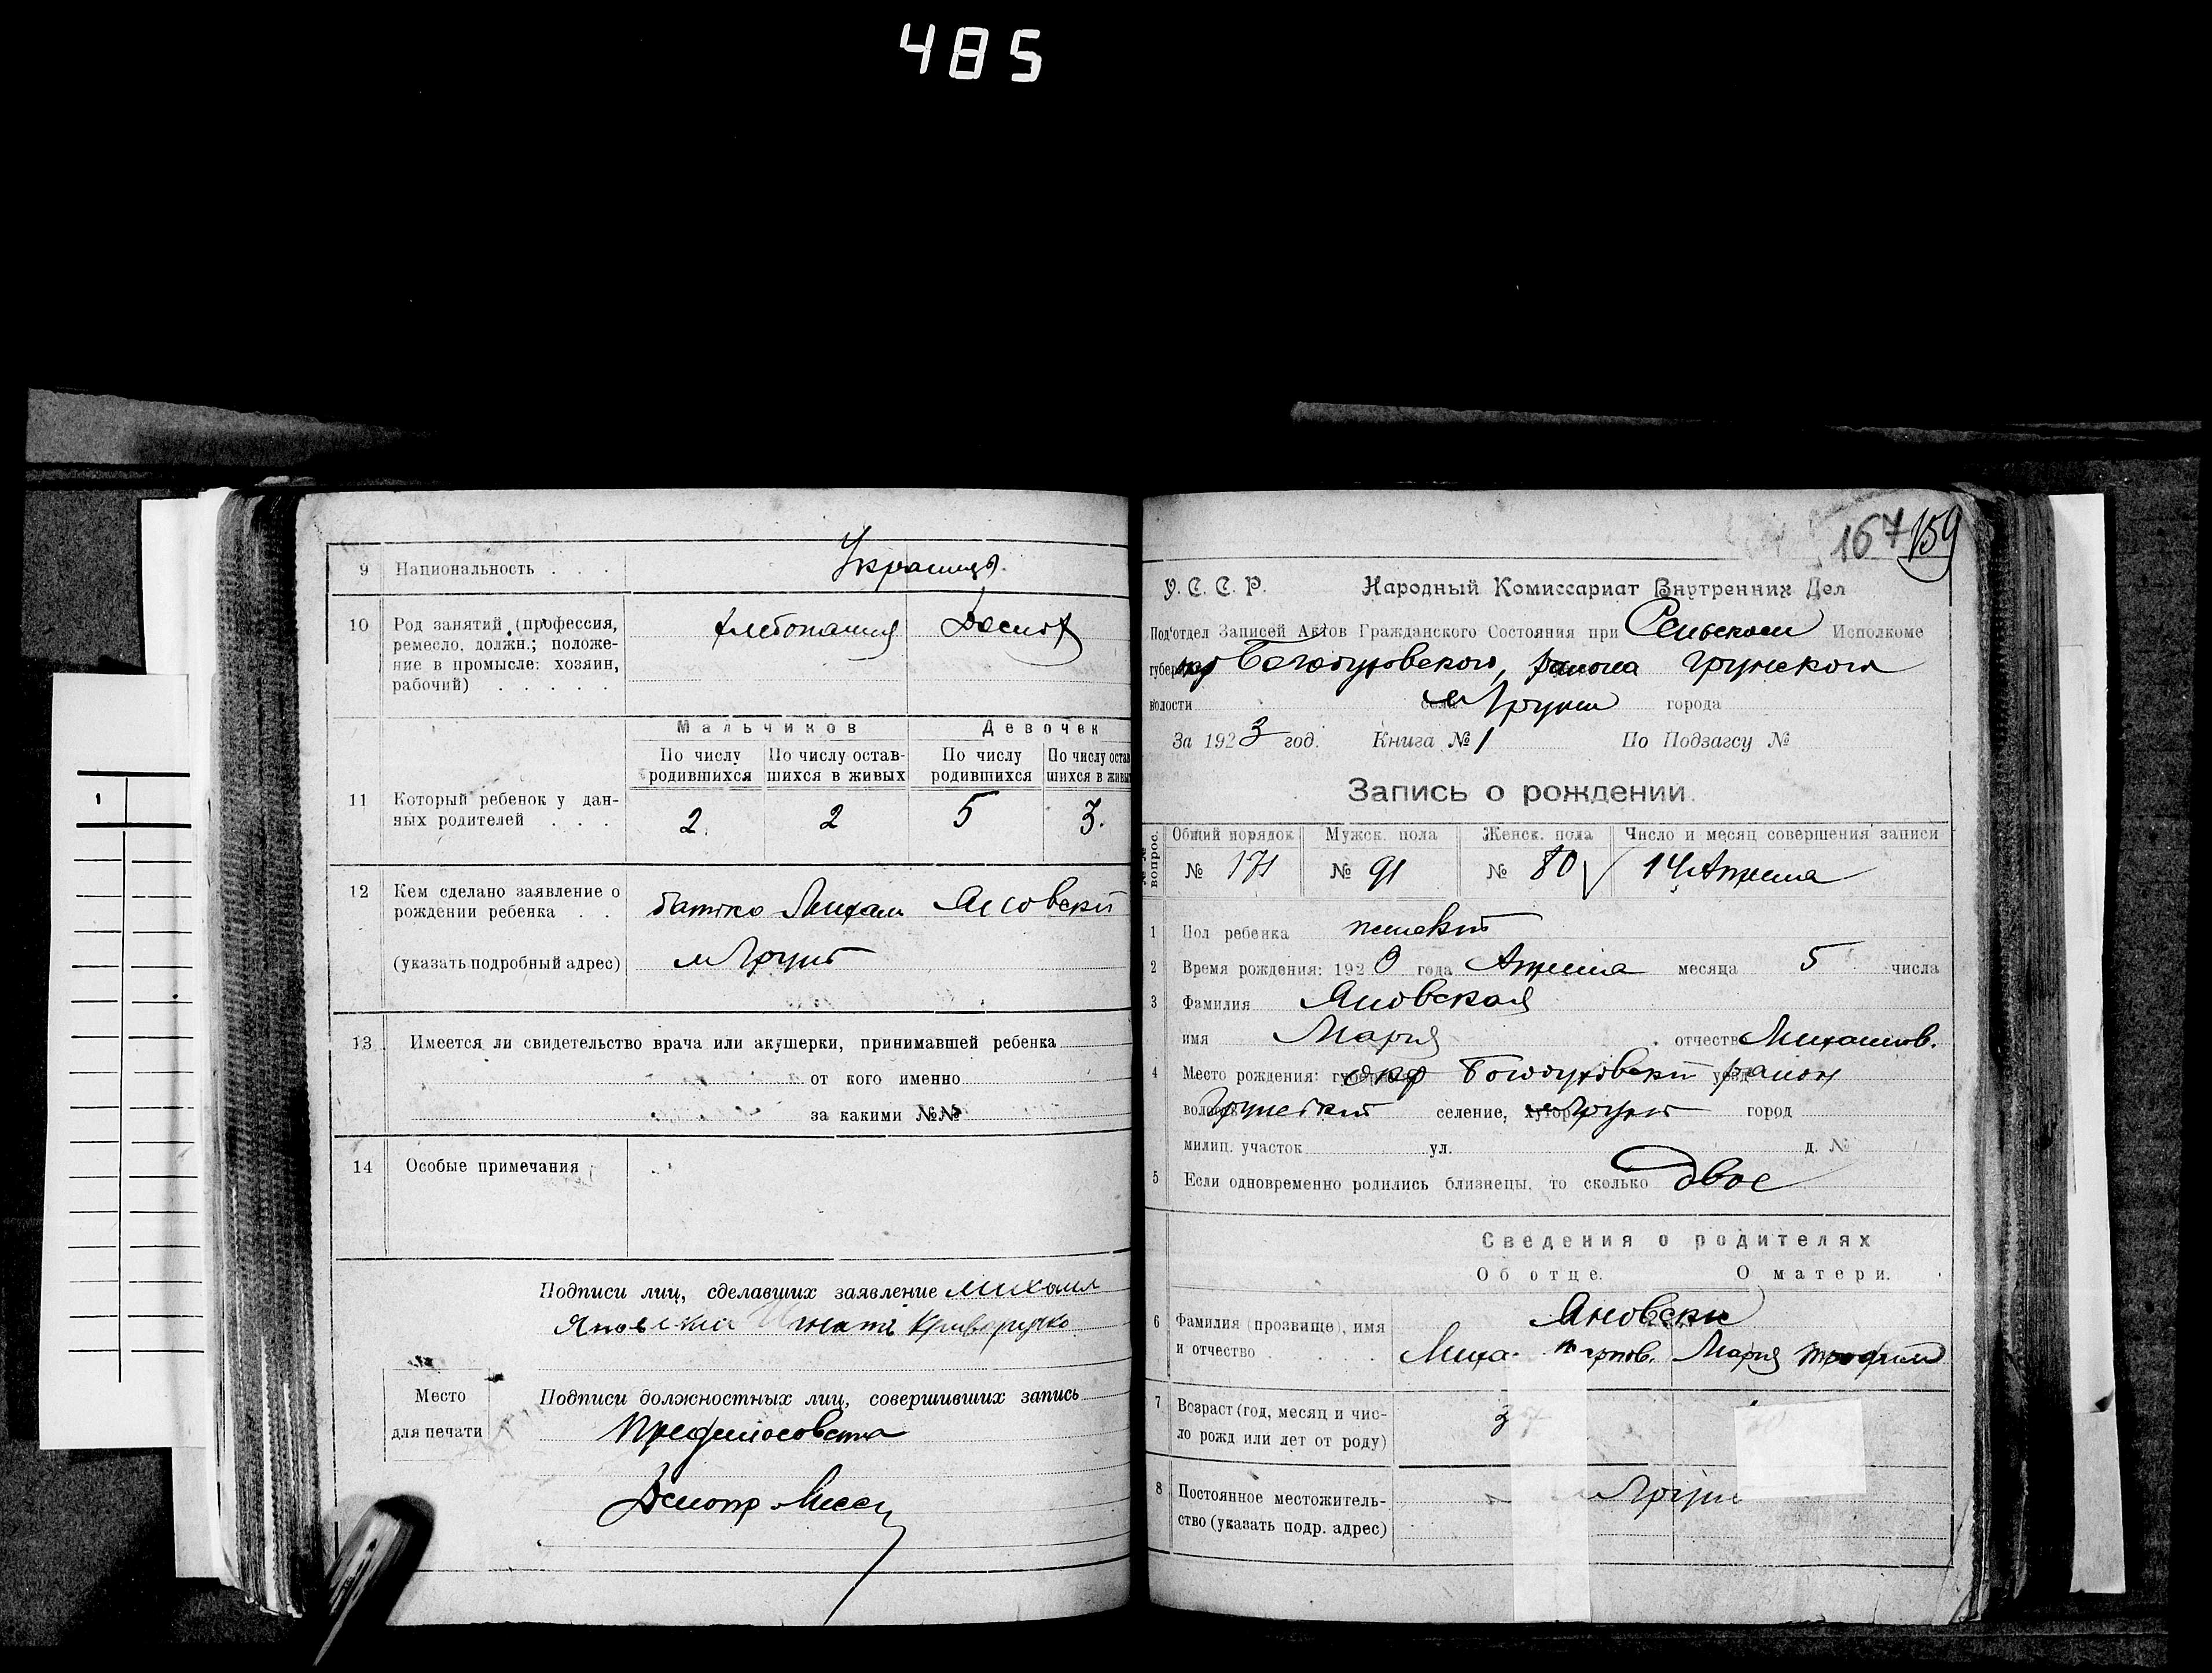 485
9 Национальность . . . Украинцы
10 Род занятий (профессия,
ремесло, должн.; положе-
ние в промысле: хозяин,
рабочий) . . . . .
хлебопашец
Мальчиков Девочек
По числу родившихся По числу остав-шихся в живых По числу родившихся По числу остав-шихся в живых
11 Который ребенок у дан-
ных родителей . . . 2. 2 5 3.
12 Кем сделано заявление о
рождении ребенка . . батько Михаил Яновский
(указать подробный адрес) м Грунь
13 Имеется ли свидетельство врача или акушерки, принимавшей ребенка
от кого именно
за какими №№
14 Особые примечания
Подписи лиц, сделавших заявление Михаил
Яновский Игнат Криворучко
Место
для печати
Подписи должностных лиц, совершивших запись
Предсилосовета
167 159
У. С. С. Р. Народный Комиссариат Внутренних Дел
Под'отдел Записей Актов Гражданского Состояния при Сельском Исполкоме
губернии окр Богодуховского, района Грунского
волости села м Грунь города
За 1923 год. Книга № 1 По Подзагсу №
Запись о рождении.
№№ вопрос.
Общий порядок Мужск. пола Женск. пола Число и месяц совершения записи
№ 171 № 91 № 80 14 Апреля
1 Пол ребенка
2 Время рождения: 1920 года Апреля месяца 5 числа
3 Фамилия Яновская
имя Мария отчество Михайлов.
4 Место рождения: губерния окр Богодуховский уезд район
волость Грунский селение, хутор м Грунь город
милиц. участок ул. д. №
5 Если одновременно родились близнецы, то сколько двое
Сведения о родителях
Об отце. О матери.
Яновски
6 Фамилия (прозвище), имя
и отчество . . . . Миха. Мария Трофим
7 Возраст (год, месяц и чис-
ло рожд или лет от роду) 37
8 Постоянное местожитель-
ство (указать подр. адрес) м Грунь